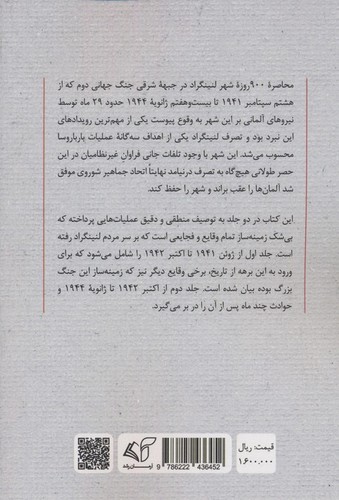 محاصرهٔ ۹۰۰روزهٔ شهر لنینگراد در جبههٔ شرقی جنگ جهانی دوم که از
هشتم سپتامبر ۱۹۴۱ تا بیست‌وهفتم ژانویهٔ ۱۹۴۴ حدود ۲۹ ماه توسط
نیروهای آلمانی بر این شهر به وقوع پیوست یکی از مهم‌ترین رویدادهای
این نبرد بود و تصرف لنینگراد یکی از اهداف سه‌گانهٔ عملیات بارباروسا
محسوب می‌شد. این شهر با وجود تلفات جانی فراوانِ غیرنظامیان در این
حصر طولانی هیچ‌گاه به تصرف درنیامد نهایتاً اتحاد جماهیر شوروی موفق
شد آلمان‌ها را عقب براند و شهر را حفظ کند.
این کتاب در دو جلد به توصیف منطقی و دقیق عملیات‌هایی پرداخته که
بی‌شک زمینه‌ساز تمام وقایع و فجایعی است که بر سر مردم لنینگراد رفته
است. جلد اول از ژوئن ۱۹۴۱ تا اکتبر ۱۹۴۲ را شامل می‌شود که برای
ورود به این برهه از تاریخ، برخی وقایع دیگر نیز که زمینه‌ساز این جنگ
بزرگ بوده بیان شده است. جلد دوم از اکتبر ۱۹۴۲ تا ژانویهٔ ۱۹۴۴ و
حوادث چند ماه پس از آن را در بر می‌گیرد.
قیمت: ریال
۱.۶۰۰.۰۰۰
9 786222 436452